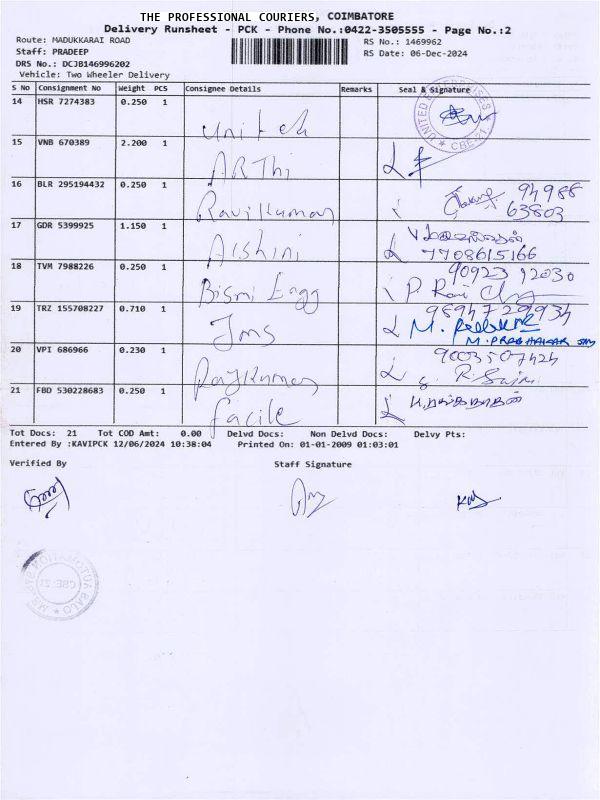 THE PROFESSIONAL COURIERS, COIMBATORE
Delivery Runsheet - PCK - Phone No.:0422-3505555 - Page No.:2
Route: MADUKKARAI ROAD
RS No.: 1469962
Staff: PRADEEP
RS Date: 06-Dec-2024
DRS No.: DCJB146996202
Vehicle: Two Wheeler Delivery
S No Consignment No Weight PCS Consignee Details Remarks Seal & Signature
14 HSR 7274383 0.250 1
Unitech
UNITED ENTERPRISES CBE-21
15 VNB 670389 2.200 1
ARThi
16 BLR 295194432 0.250 1
Ravikumar
94988
63803
17 GDR 5399925 1.150 1
Arshini
7708615166
18 TVM 7988226 0.250 1
Bismi Engg
90923 92030
P. Ravi
19 TRZ 155708227 0.710 1
Jms
9894729934
M. PRABHAKAR
20 VPI 686966 0.230 1
Rajkumar
9003507424
21 FBD 530228683 0.250 1
Facile
Tot Docs: 21 Tot COD Amt: 0.00 Delvd Docs: Non Delvd Docs: Delvy Pts:
Entered By :KAVIPCK 12/06/2024 10:38:04 Printed On: 01-01-2009 01:03:01
Verified By
Staff Signature